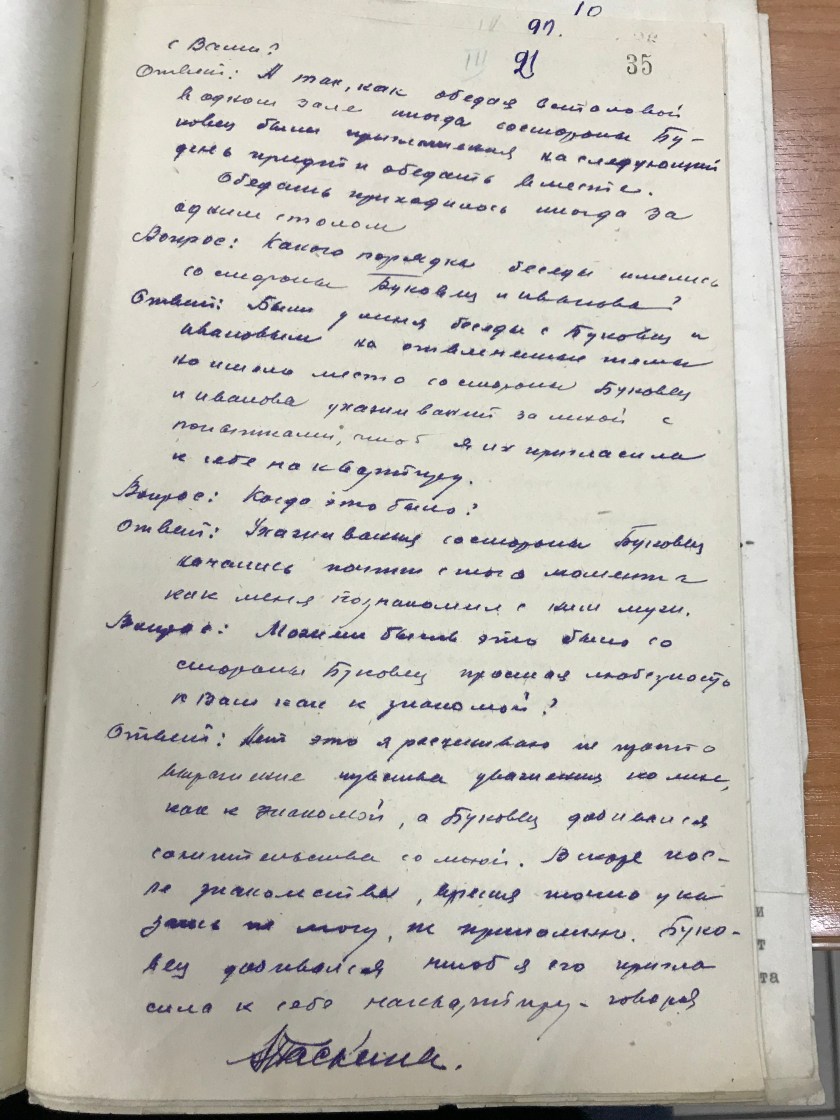 10
IV 97.
III 21 35
с Вами?
Ответ: А так, как обедая встоловой
в одном зале иногда состороны Бу-
ковец были приглашения наследующий
день придти обедать вместе.
Обедать приходилось иногда за
одним столом
Вопрос: Какого порядка беседы имелись
со стороны Буковец и иванова?
Ответ: Были у меня беседы с Буковец и
ивановым на отвлеченные темы
но имело место состороны Буковец
и иванова ухаживаний за мной с
попытками, чтоб я их пригласила
к себе на квартиру.
Вопрос: Когда это было?
Ответ: Ухаживания состороны Буковец
начались почти с того момента
как меня познакомил с ним муж.
Вопрос: Может быть это было со
стороны Буковец простая любезность
к Вам как к знакомой?
Ответ: Нет это я расцениваю не просто
выражение чувства уважения ко мне,
как к знакомой, а Буковец добивался
сожительства со мной. Вскоре пос-
ле знакомства, время точно ука
зать не могу, не припомню. Буко-
вец добивался чтоб я его пригла
сила к себе наквартиру - говоря
Паскина.
и
т
та